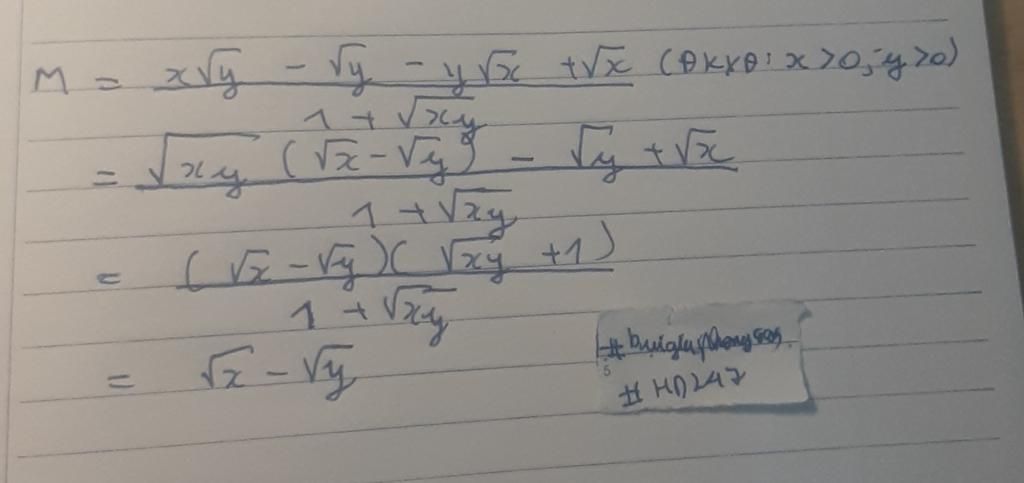 M = x√y - √y - y√x + √x (ĐKXĐ: x > 0; y > 0)
1 + √xy
= √xy (√x - √y) - √y + √x
1 + √xy
= (√x - √y)(√xy + 1)
1 + √xy
= √x - √y
# HD247